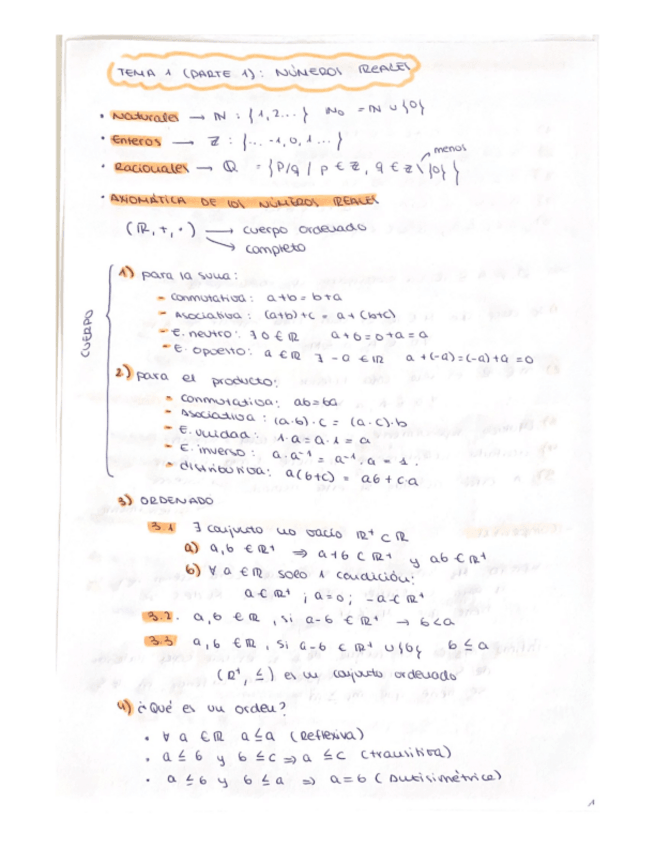 TEMA 1 (PARTE 1): NÚMEROS REALES
• Naturales → ℕ : {1,2...} ℕ₀ = ℕ ∪ {0}
menos
• Enteros → ℤ : {... -1, 0, 1 ...}
• Racionales → ℚ = {P/q / p ∈ ℤ, q ∈ ℤ\{0}}
• AXIOMÁTICA DE LOS NÚMEROS REALES
(ℝ, +, ·) → cuerpo ordenado
→ completo
CUERPO
1) para la suma:
- conmutativa: a+b = b+a
- Asociativa: (a+b)+c = a+(b+c)
- E. neutro: ∃ 0 ∈ ℝ a+0 = 0+a = a
- E. opuesto: a ∈ ℝ ∃ -a ∈ ℝ a+(-a)=(-a)+a = 0
2) para el producto:
- conmutativa: ab = ba
- Asociativa: (a·b)·c = (a·c)·b
- E. unidad: 1·a = a·1 = a
- E. inverso: a·a⁻¹ = a⁻¹·a = 1.
- distributiva: a(b+c) = ab + c·a
3) ORDENADO
3.1 ∃ conjunto no vacío ℝ⁺ ⊂ ℝ
a) a,b ∈ ℝ⁺ ⇒ a+b ∈ ℝ⁺ y ab ∈ ℝ⁺
b) ∀ a ∈ ℝ solo 1 condición:
a ∈ ℝ⁺ ; a=0; -a ∈ ℝ⁺
3.2. a,b ∈ ℝ, si a-b ∈ ℝ⁺ → b<a
3.3 a,b ∈ ℝ, si a-b ∈ ℝ⁺ ∪ {0} b ≤ a
(ℝ⁺, ≤) es un conjunto ordenado
4) ¿Qué es un orden?
• ∀ a ∈ ℝ a ≤ a (Reflexiva)
• a ≤ b y b ≤ c ⇒ a ≤ c (transitiva)
• a ≤ b y b ≤ a ⇒ a = b (Antisimétrica)
1